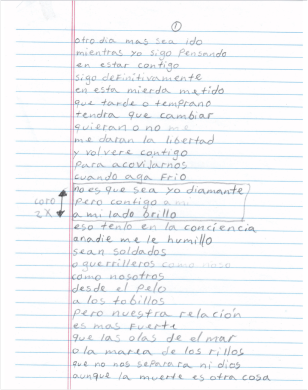 ①
otro dia mas sea ido
mientras yo sigo Pensando
en estar contigo
sigo definitivamente
en esta mierda metido
que tande o temprano
tendra que cambiar
quieran o no me
me daran la libertad
y volvere contigo
para acovijarnos
cuando aga Frio
no es que sea yo diamante
coro 2X
Pero contigo a mi
a mi lado brillo
eso tenlo en la conciencia
anadie me le humillo
sean soldados
o guerrilleros como
como nosotros
desde el Pelo
a los tobillos
pero nuestra relación
es mas Fuerte
que las olas de el mar
o la marea de los rillos
que no nos separara ni dios
aunque la muerte es otra cosa